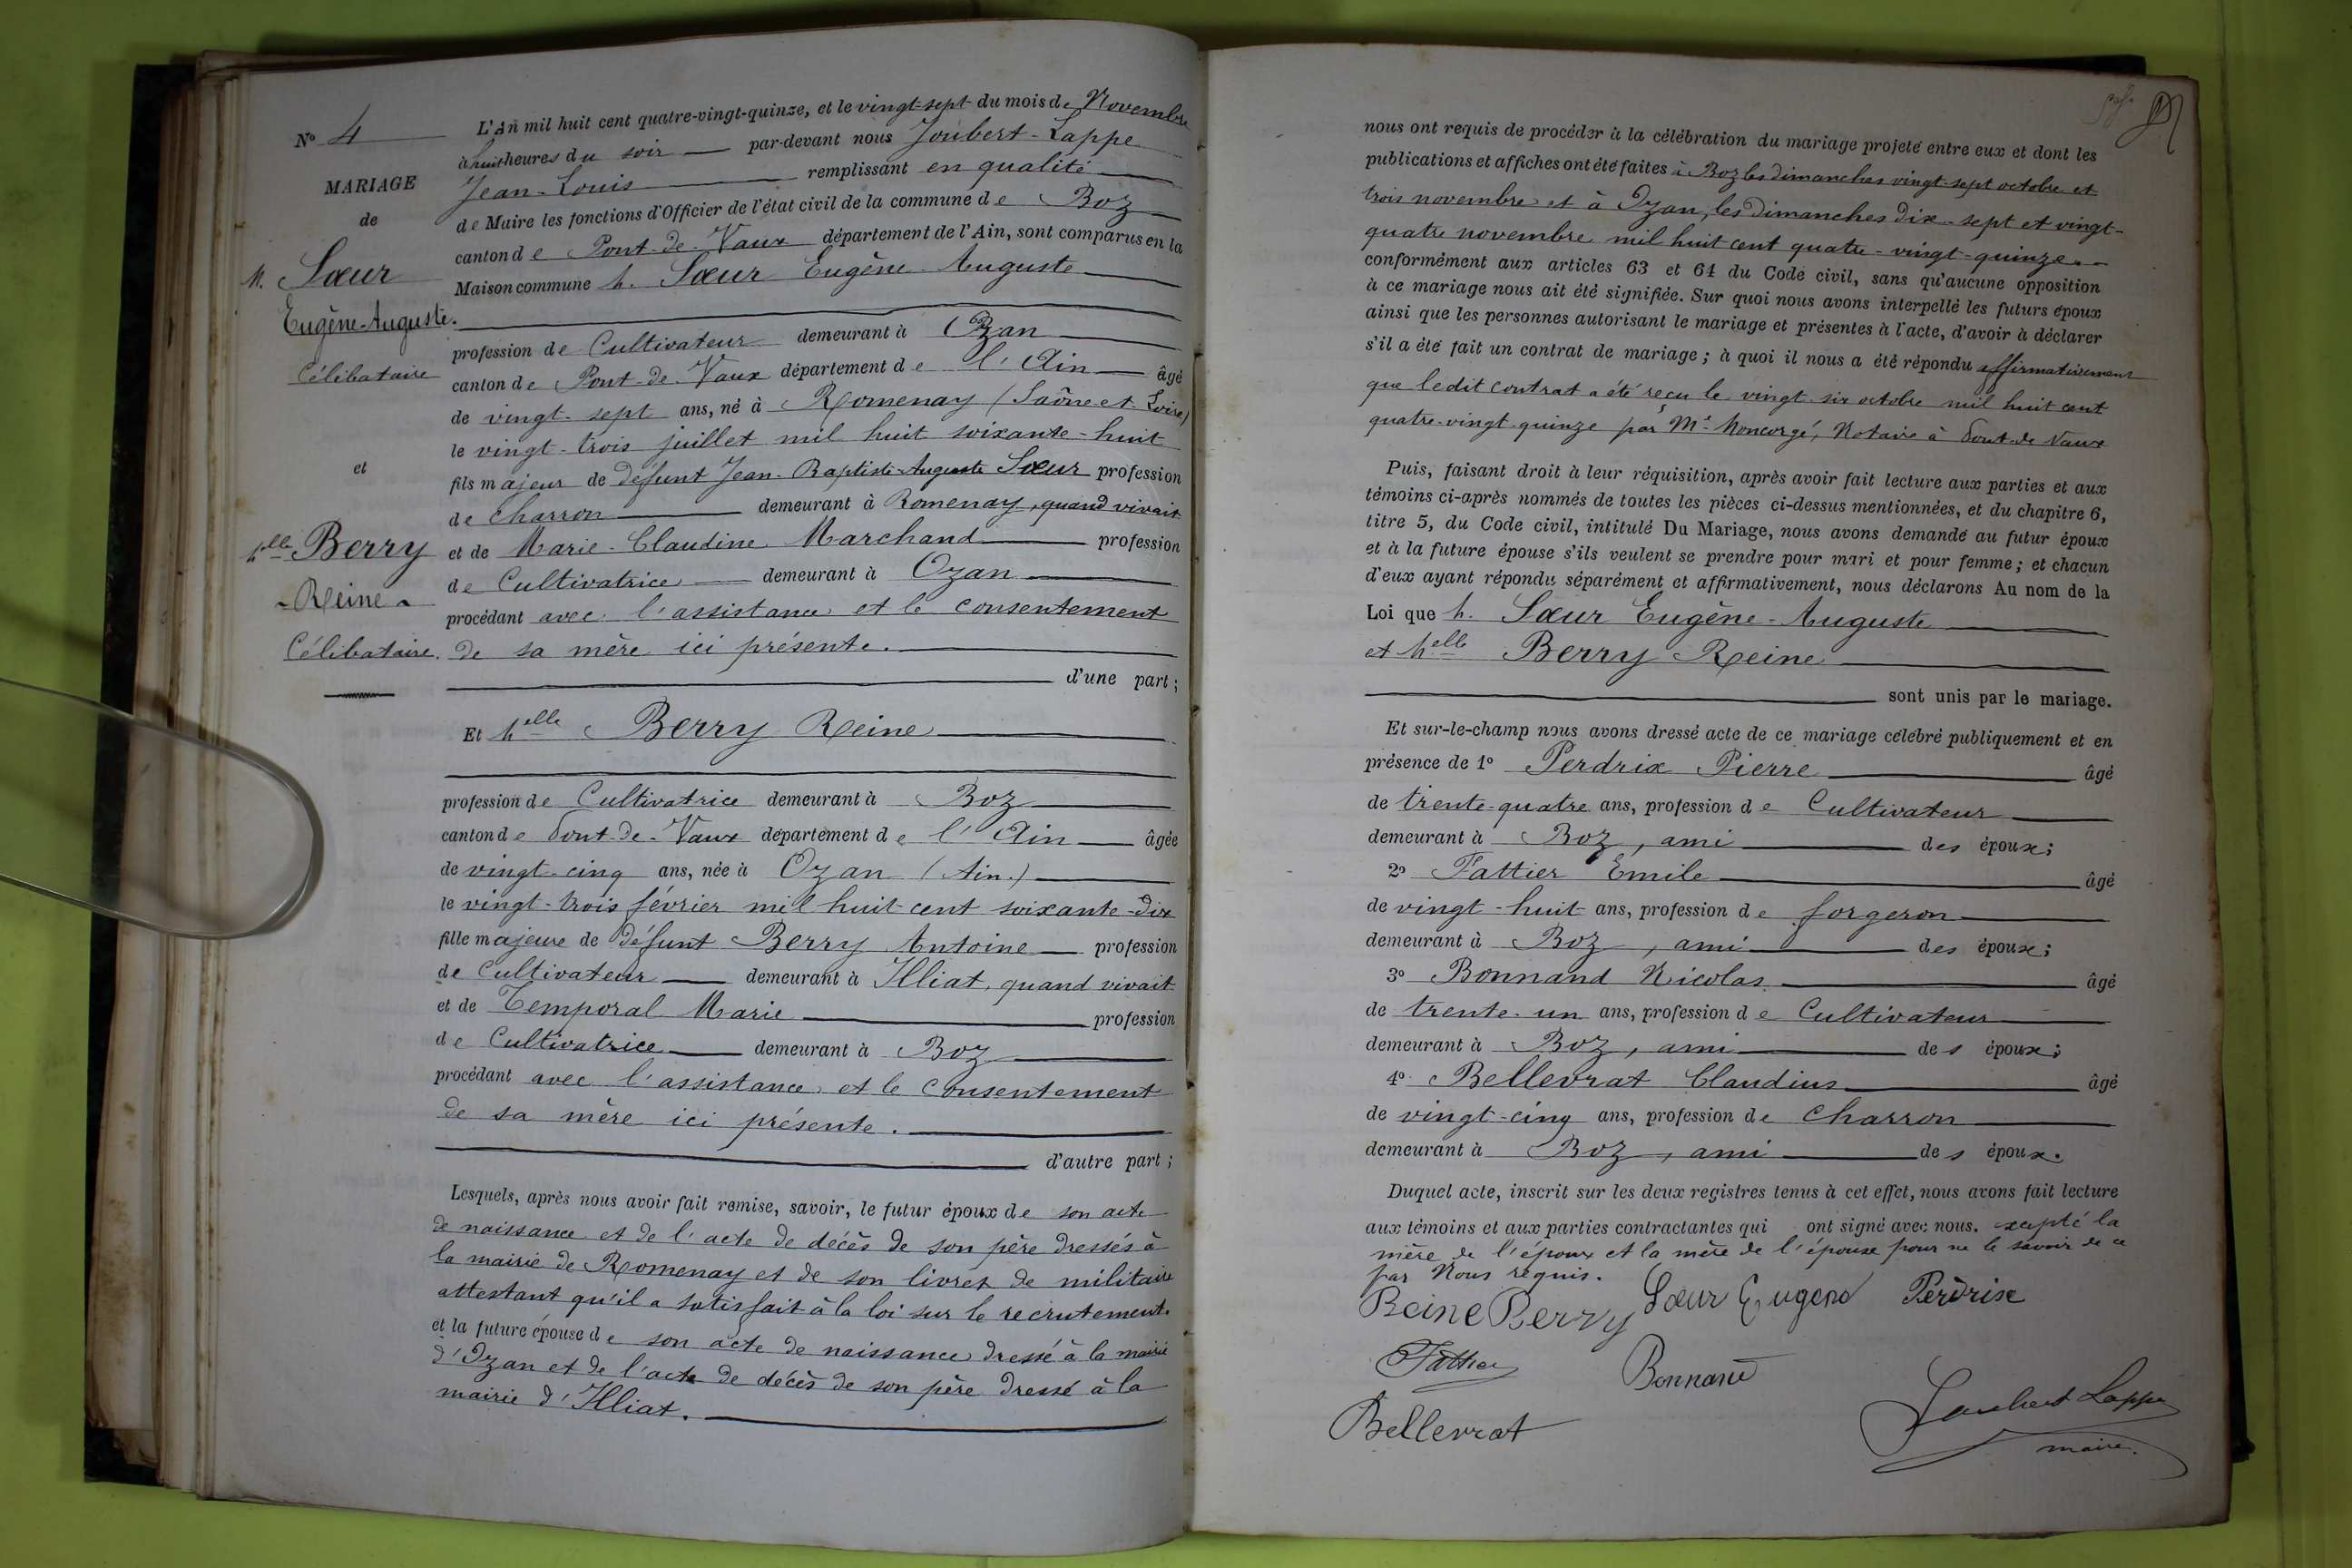 N° 4
MARIAGE
de
M. Sœur
Eugène-Auguste.
Célibataire
et
Melle Berry
- Reine -
Célibataire.
L'An mil huit cent quatre-vingt-quinze, et le vingt-sept du mois de Novembre
à huit heures du soir — par-devant nous Joubert-Lappe
Jean-Louis — remplissant en qualité
de Maire les fonctions d'Officier de l'état civil de la commune de Boz
canton de Pont-de-Vaux département de l'Ain, sont comparus en la
Maison commune M. Sœur Eugène-Auguste
profession de Cultivateur demeurant à Ozan
canton de Pont-de-Vaux département de l'Ain — âgé
de vingt-sept ans, né à Romenay (Saône-et-Loire)
le vingt-trois juillet mil huit soixante-huit
fils majeur de défunt Jean-Baptiste-Auguste Sœur profession
de charron — demeurant à Romenay, quand vivait
et de Marie-Claudine Marchand — profession
de Cultivatrice — demeurant à Ozan
procédant avec l'assistance et le consentement
de sa mère ici présente.
d'une part;
Et Melle Berry Reine
profession de Cultivatrice demeurant à Boz
canton de Pont-de-Vaux département de l'Ain — âgée
de vingt-cinq ans, née à Ozan (Ain.)
le vingt-trois février mil huit cent soixante-dix
fille majeure de défunt Berry Antoine — profession
de Cultivateur — demeurant à Illiat, quand vivait
et de Temporal Marie — profession
de Cultivatrice — demeurant à Boz
procédant avec l'assistance et le consentement
de sa mère ici présente.
d'autre part;
Lesquels, après nous avoir fait remise, savoir, le futur époux de son acte
de naissance et de l'acte de décès de son père dressés à
la mairie de Romenay et de son livret de militaire
attestant qu'il a satisfait à la loi sur le recrutement.
et la future épouse de son acte de naissance dressé à la mairie
d'Ozan et de l'acte de décès de son père dressé à la
mairie d'Illiat.
nous ont requis de procéder à la célébration du mariage projeté entre eux et dont les
publications et affiches ont été faites à Boz les dimanches vingt-sept octobre et
trois novembre et à Ozan, les dimanches dix-sept et vingt-
quatre novembre mil huit cent quatre-vingt-quinze.
conformément aux articles 63 et 64 du Code civil, sans qu'aucune opposition
à ce mariage nous ait été signifiée. Sur quoi nous avons interpellé les futurs époux
ainsi que les personnes autorisant le mariage et présentes à l'acte, d'avoir à déclarer
s'il a été fait un contrat de mariage; à quoi il nous a été répondu affirmativement
que ledit contrat a été reçu le vingt-six octobre mil huit cent
quatre-vingt-quinze par Me Moncorgé, Notaire à Pont-de-Vaux
Puis, faisant droit à leur réquisition, après avoir fait lecture aux parties et aux
témoins ci-après nommés de toutes les pièces ci-dessus mentionnées, et du chapitre 6,
titre 5, du Code civil, intitulé Du Mariage, nous avons demandé au futur époux
et à la future épouse s'ils veulent se prendre pour mari et pour femme; et chacun
d'eux ayant répondu séparément et affirmativement, nous déclarons Au nom de la
Loi que M. Sœur Eugène-Auguste
et Melle Berry Reine
sont unis par le mariage.
Et sur-le-champ nous avons dressé acte de ce mariage célébré publiquement et en
présence de 1° Perdrix Pierre — âgé
de trente-quatre ans, profession de Cultivateur
demeurant à Boz, ami — des époux;
2° Fattier Emile — âgé
de vingt-huit ans, profession de forgeron
demeurant à Boz, ami — des époux;
3° Bonnand Nicolas — âgé
de trente-un ans, profession de Cultivateur
demeurant à Boz, ami — des époux;
4° Bellevrat Claudius — âgé
de vingt-cinq ans, profession de charron
demeurant à Boz, ami — des époux.
Duquel acte, inscrit sur les deux registres tenus à cet effet, nous avons fait lecture
aux témoins et aux parties contractantes qui ont signé avec nous. excepté la
mère de l'époux et la mère de l'épouse pour ne le savoir de ce
par Nous requis.
Reine Berry Sœur Eugene Perdrix
Fattier Bonnand
Bellevrat Joubert Lappe
maire.